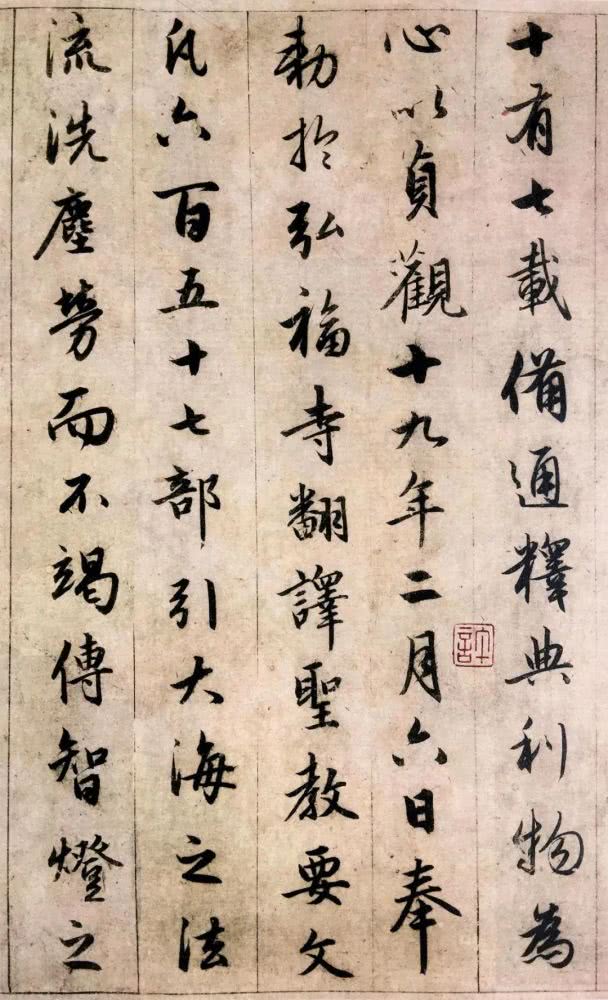 十有七載備通釋典利物為
心以貞觀十九年二月六日奉
勑於弘福寺翻譯聖教要文
凡六百五十七部引大海之法
流洗塵勞而不竭傳智燈之